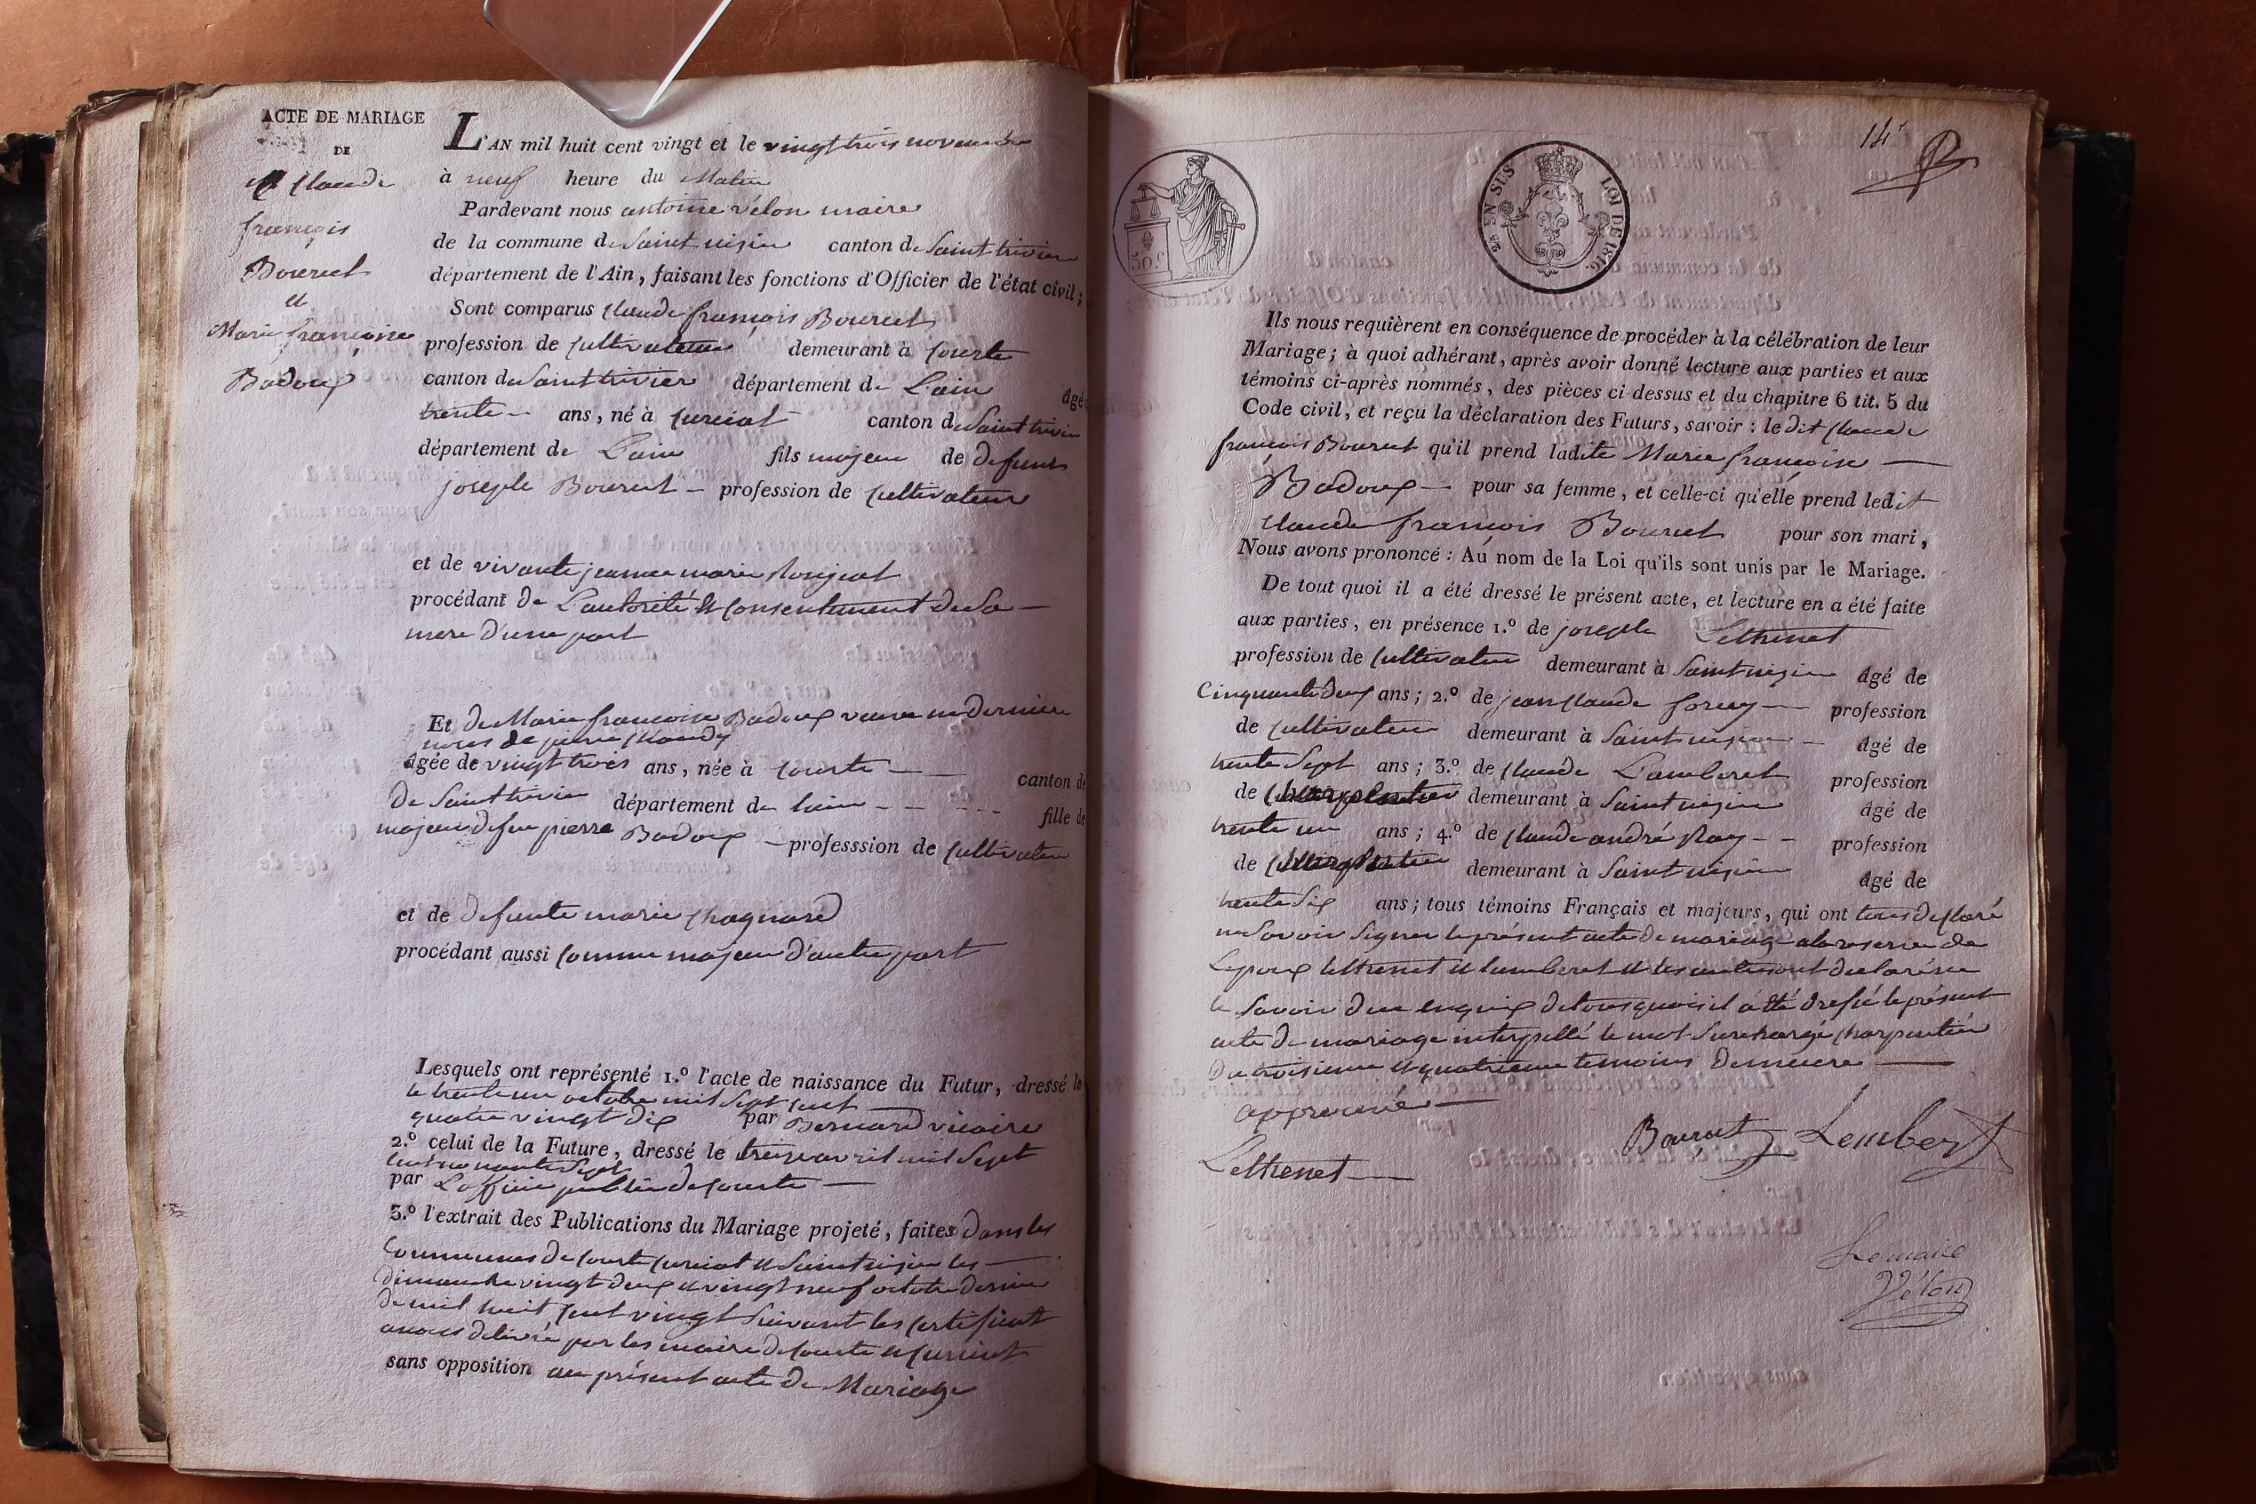 ACTE DE MARIAGE
DE
Claude
françois
Bourcet
et
Marie françoise
Badoux
L'AN mil huit cent vingt et le vingt trois novembre
à neuf heure du Matin
Pardevant nous antoine vélon maire
de la commune de Saint nizier canton de Saint trivier
département de l'Ain, faisant les fonctions d'Officier de l'état civil;
Sont comparus Claude françois Bourcet
profession de Cultivateur demeurant à Courte
canton de Saint trivier département de Lain âgé
trente ans, né à Curciat canton de Saint trivier
département de Lain fils majeur de defunt
joseph Bourcet - profession de Cultivateur
et de vivante jeanne marie
procédant de L'autorité et Consentement de Sa
mere d'une part
Et de Marie francoise Badoux veuve en derniere
noces de pierre
âgée de vingt trois ans, née à Courte canton de
de Saint trivier département de Lain - - - - - fille de
majeur de feu pierre Badoux - professsion de Cultivateur
et de defunte marie Chagnard
procédant aussi Comme majeur d'autre part
Lesquels ont représenté 1.º l'acte de naissance du Futur, dressé le
le trente un octobre mil Sept Cent
quatre vingt dix par Bernard vicaire
2.º celui de la Future, dressé le treize avril mil Sept
Cent nonante Sept
par L'officier public de Courte
3.º l'extrait des Publications du Mariage projeté, faites Dans les
Communes de Courte Curciat et Saint nizier les
dimanche vingt deux et vingt neuf octobre dernier
de mil huit Cent vingt Suivant les Certificat
anous delivré par les maire de Courte et Curciat
sans opposition au présent acte de Mariage
14
50 C
EN SUS LOI DE 1816.
Ils nous requièrent en conséquence de procéder à la célébration de leur
Mariage; à quoi adhérant, après avoir donné lecture aux parties et aux
témoins ci-après nommés, des pièces ci-dessus et du chapitre 6 tit. 5 du
Code civil, et reçu la déclaration des Futurs, savoir : le dit Claude
françois Bourcet qu'il prend ladite Marie françoise
Badoux pour sa femme, et celle-ci qu'elle prend ledit
Claude françois Bourcet pour son mari,
Nous avons prononcé : Au nom de la Loi qu'ils sont unis par le Mariage.
De tout quoi il a été dressé le présent acte, et lecture en a été faite
aux parties, en présence 1.º de joseph Lethenet
profession de Cultivateur demeurant à Saint nizier âgé de
Cinquante deux ans; 2.º de jean Claude profession
de Cultivateur demeurant à Saint nizier - âgé de
trente Sept ans; 3.º de Claude Lamberet profession
de Charpentier demeurant à Saint nizier âgé de
trente un ans; 4.º de Claude andré Ray - - profession
de Charpentier demeurant à Saint nizier âgé de
trente Six ans; tous témoins Français et majeurs, qui ont tous declaré
ne Savoir Signer le présent acte de mariage ala reserve de
Lepoux lethenet et lamberet et les autres ont declaré ne
le Savoir due enquis de tous quoi il a été dressé le présent
acte de mariage interpellé le mot Surchargé Charpentier
du troisieme et quatrieme temoins Demeure
approuvé
Lethenet Bourcet Lember
Le maire
Vélon